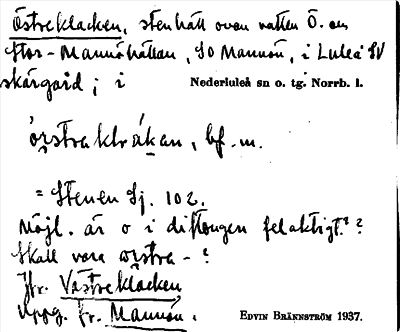 Östreklacken, stenhäll ovan vatten Ö. om
Stor-Mannöhällan, SO Mannön, i Luleå SV
skärgård; i Nederluleå sn o. tg. Norrb. l.
bf. m.
= Stenen Sj. 102.
Möjl. är o i diftongen felaktigt?
Skall vara
Jfr. Västreklacken
Uppg. fr. Mannön. EDVIN BRÄNNSTRÖM 1937.